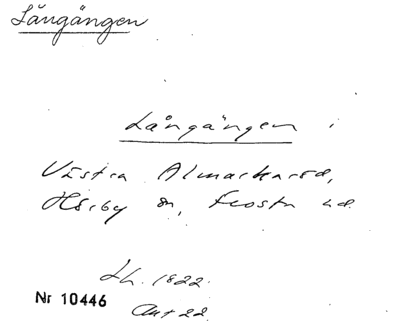 Långången
Långången i
Västra Almarkaröd,
Hörby sn, Frosta hd.
Lh. 1822.
Nr 10446
Akt 22